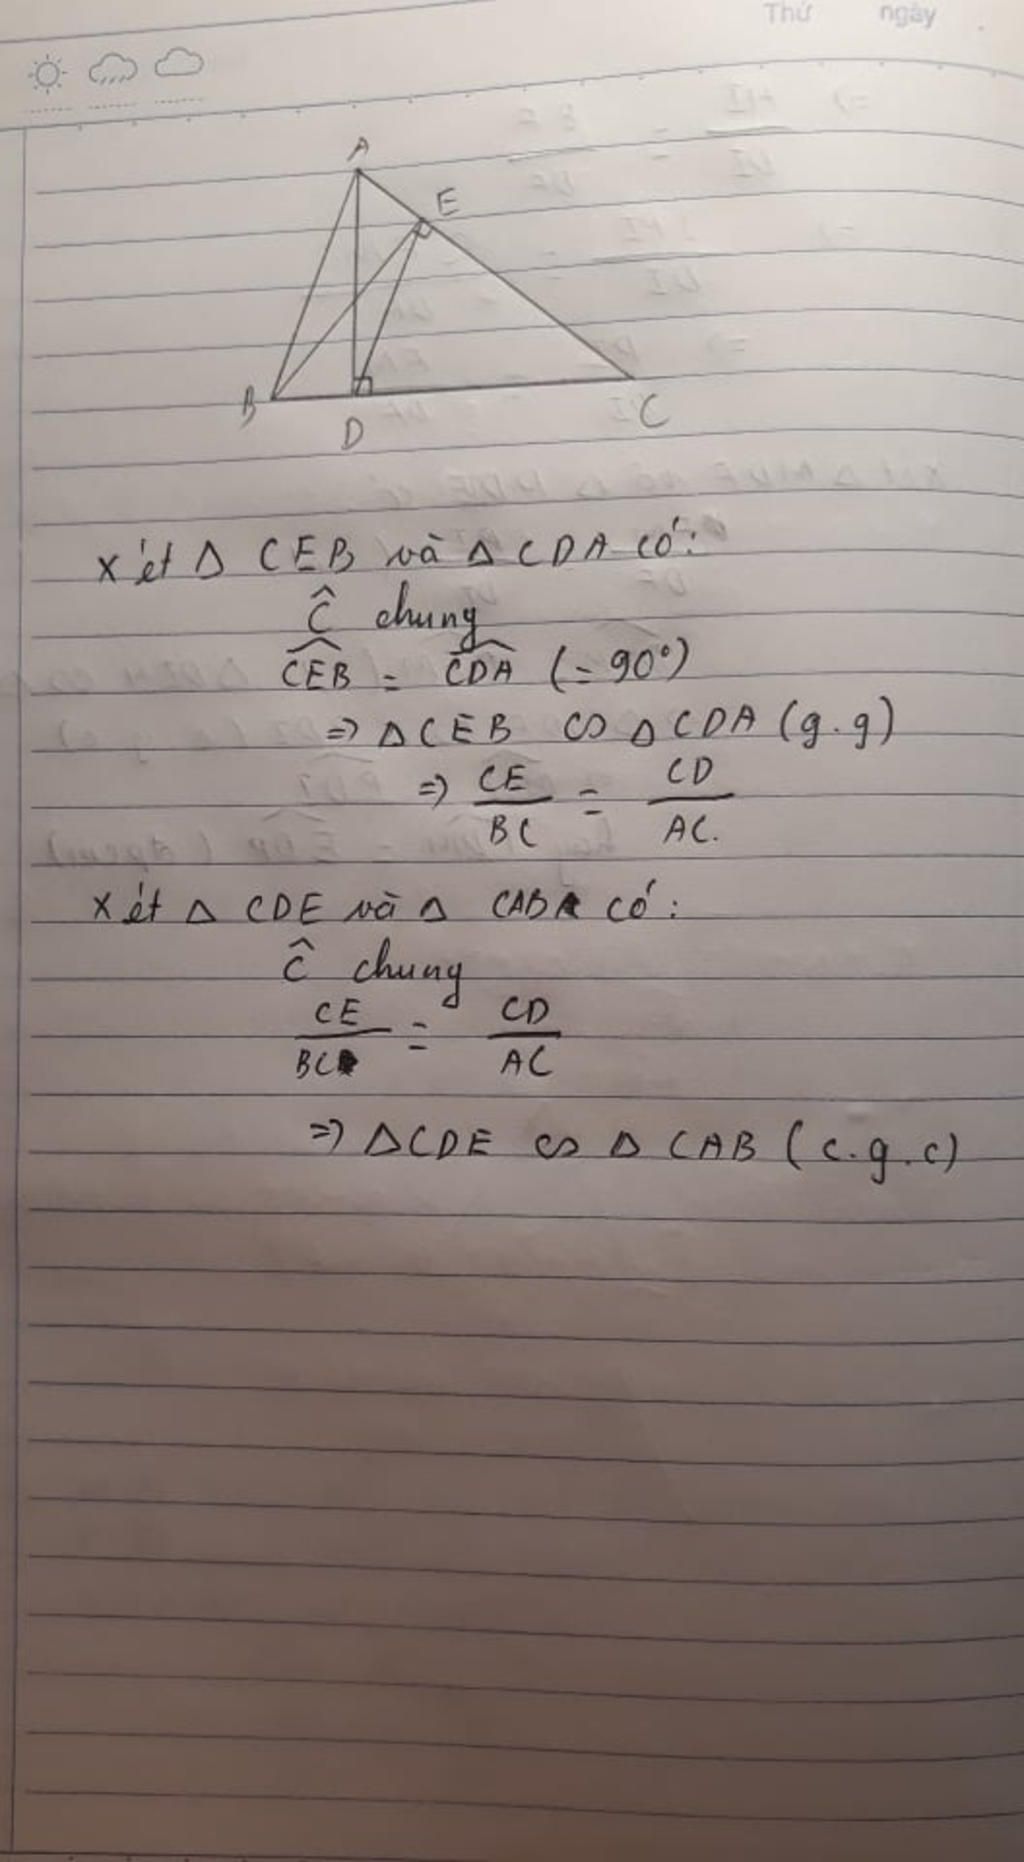 Thứ ngày
A
E
B
D
C
Xét Δ CEB và Δ CDA có:
Ĉ chung
CEB = CDA (= 90°)
=> Δ CEB ∽ Δ CDA (g.g)
=> CE/BC = CD/AC.
Xét Δ CDE và Δ CAB có:
Ĉ chung
CE/BC = CD/AC
=> ΔCDE ∽ Δ CAB (c.g.c)